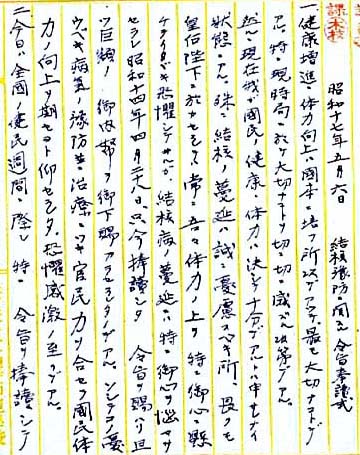 課本校
昭和十七年五月六日
結核豫防ニ関スル令旨奉讀式
一、健康増進・体力向上ハ國本ニ培フ所以デアッテ最モ大切ナコトデ
アル。特ニ現時局ニ於テ大切ナコトヲ切ニ切ニ感ズル次第デアル。
然ルニ現在我ガ國民ノ健康・体力ハ決シテ十分デアルトハ申セナイ
状態デアル。殊ニ結核ノ蔓延ハ誠ニ憂慮スベキ所、畏クモ
皇后陛下ニ於カセラレテハ常ニ吾々体力ノ上ニ特ニ御心ヲ懸
ケサセラレ恐懼シテヰルガ、結核病ノ蔓延ニハ特ニ御心ヲ悩マサ
セラレ昭和十四年四月二十八日、只今捧讀シタ令旨ヲ賜ハリ且
ツ巨額ノ御内帑ヲ御下賜アラセラレタノデアル。ソシテコノ憂
フベキ病気ノ豫防並ニ治療ニツキ官民力ヲ合セテ國民体
力ノ向上ヲ期セヨト仰セラレタ。恐懼感激ノ至リデアル。
二、今回ノ全國ノ健民週間ニ際シ特ニ令旨ヲ捧讀シテ